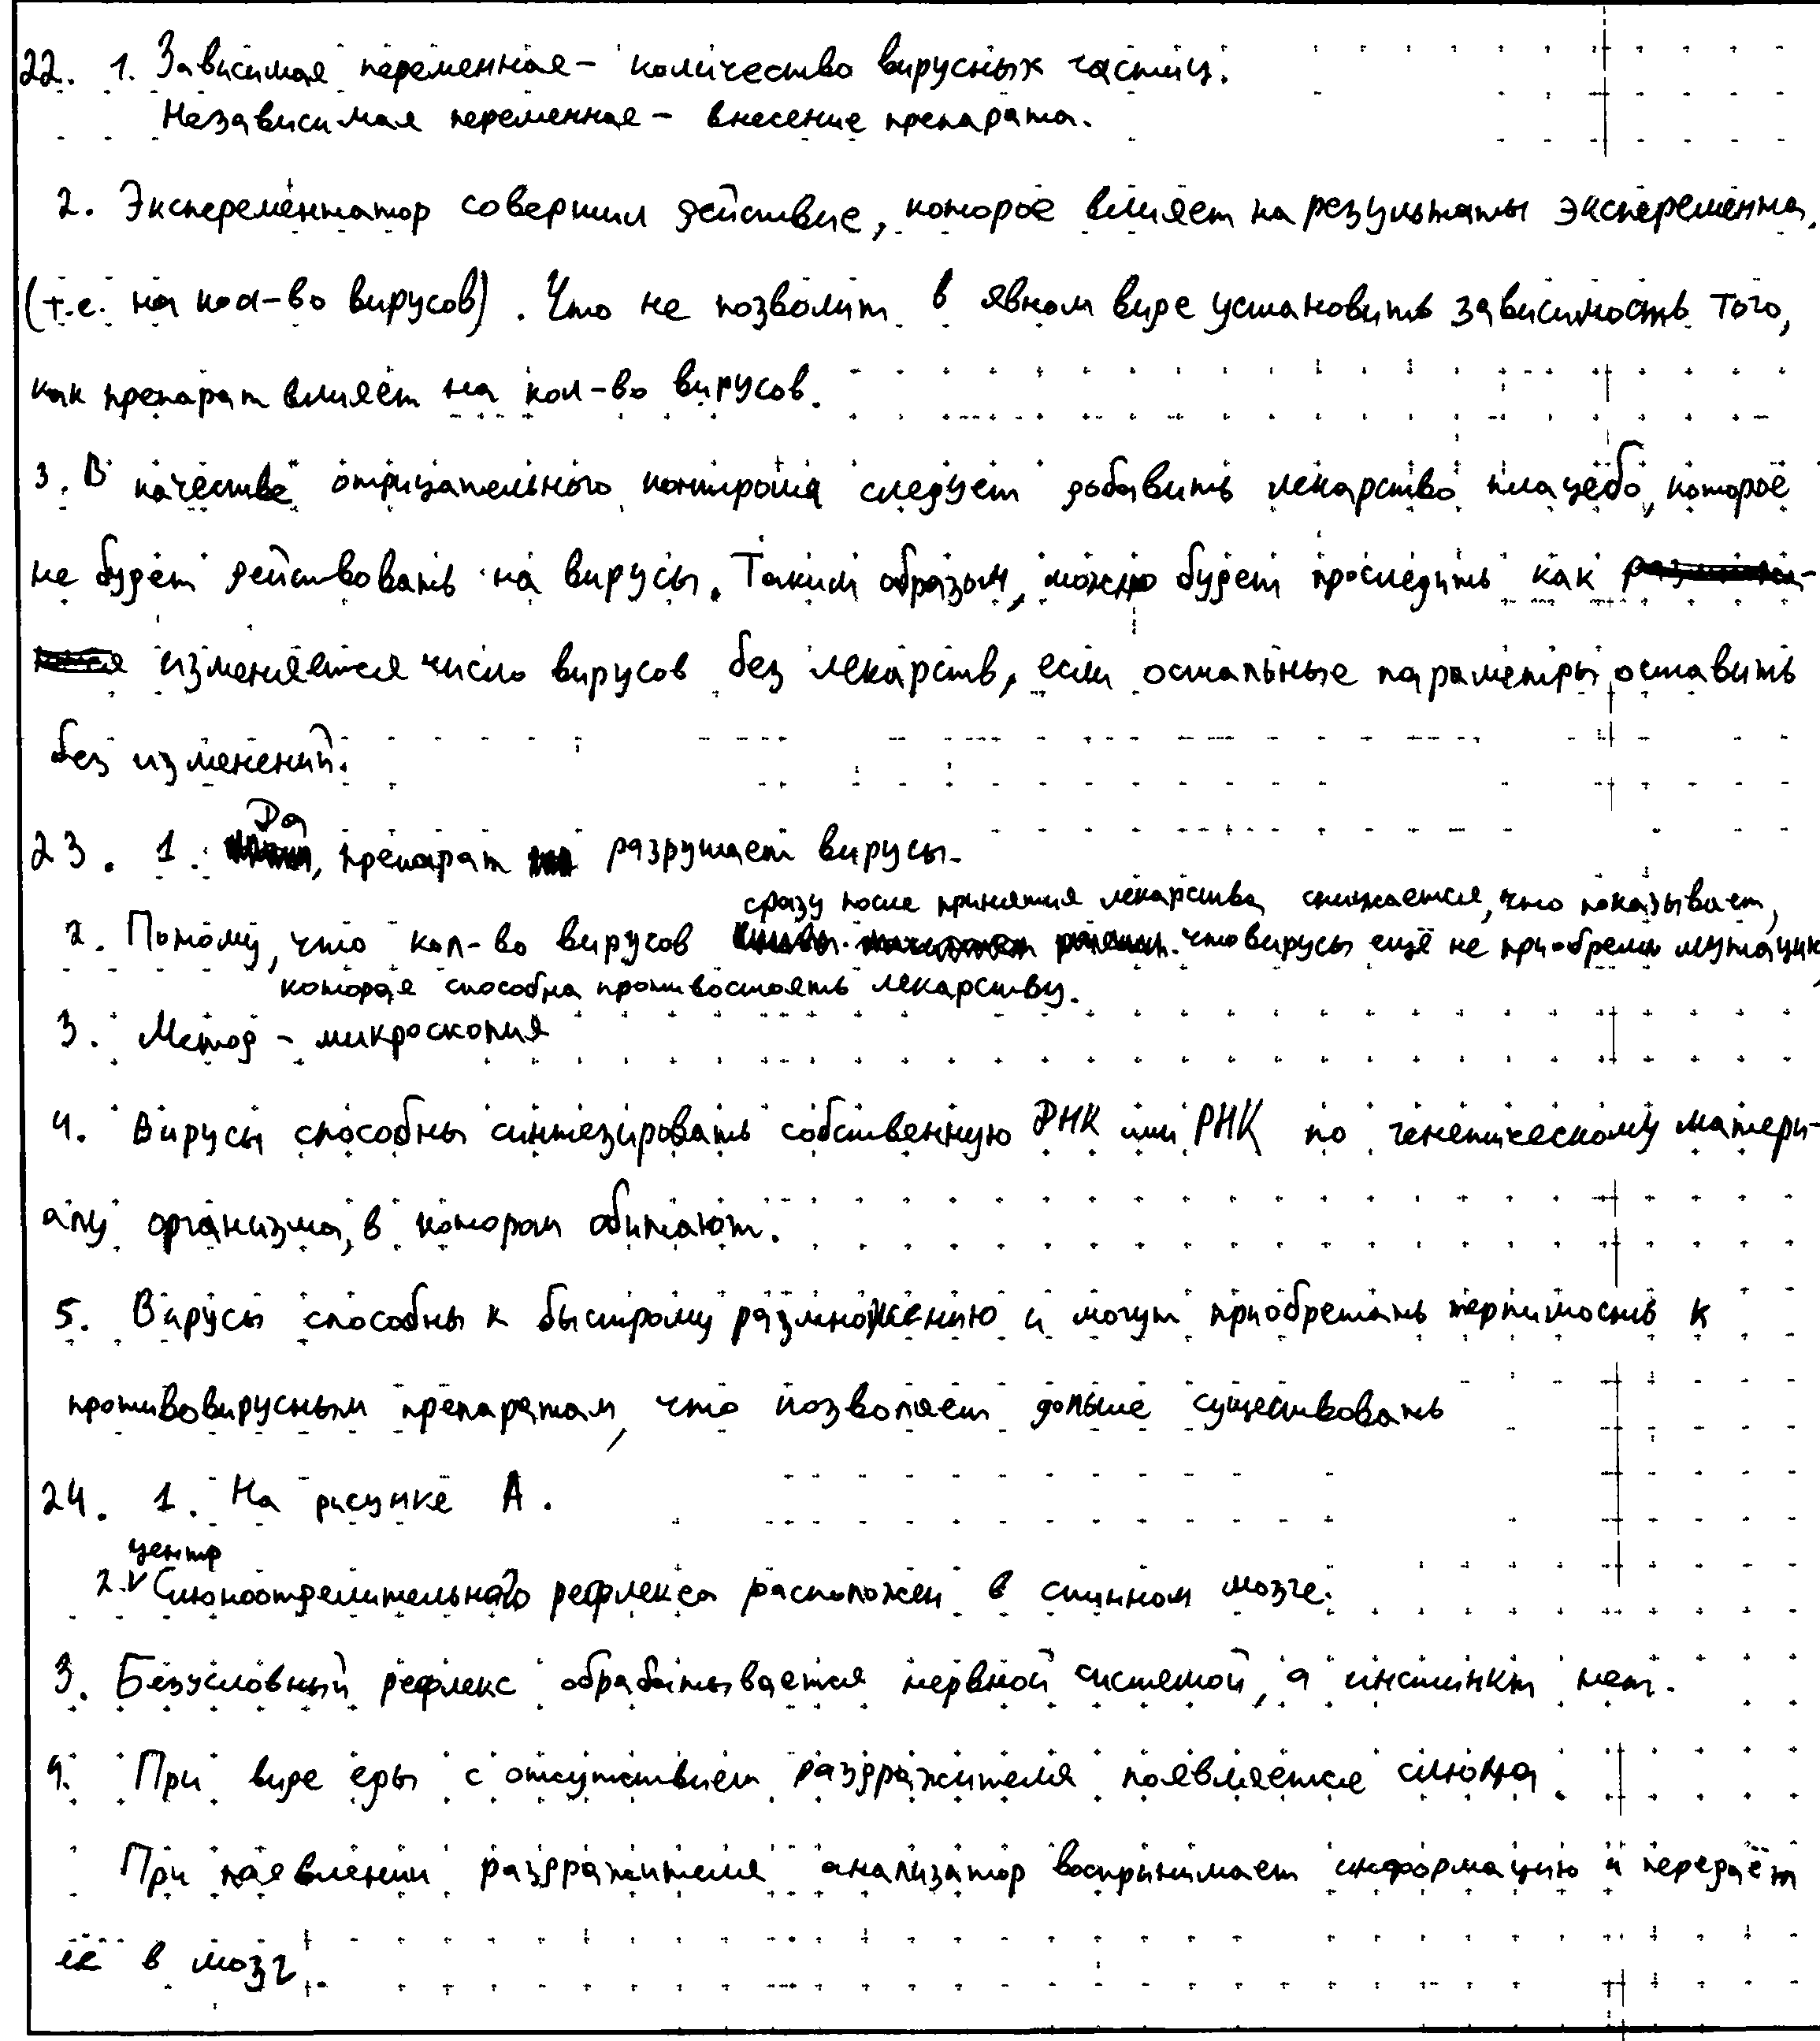 22. 1. Зависимая переменная – количество вирусных частиц.
Независимая переменная – внесение препарата.
2. Эксперементатор совершил действие, которое влияет на результаты эксперемента.
(т.е. на кол-во вирусов). Что не позволит в явном виде установить зависимость того,
как препарат влияет на кол-во вирусов.
3. В качестве отрицательного контроля следует добавить лекарство плацебо, которое
не будет действовать на вирусы. Таким образом, можно будет проследить как
изменяется число вирусов без лекарств, если остальные параметры оставить
без изменений.
23. 1. Да, препарат разрушает вирусы.
2. Потому, что кол-во вирусов сразу после принятия лекарства снижается, что показывает,
что вирусы ещё не приобрели мутацию,
которая способна противостоять лекарству.
3. Метод – микроскопия
4. Вирусы способны синтезировать собственную ДНК или РНК по генетическому матери-
алу организма, в котором обитают.
5. Вирусы способны к быстрому размножению и могут приобретать терпимость к
противовирусным препаратам, что позволяет дольше существовать
24. 1. На рисунке А.
2. центр Слюноотделительного рефлекса расположен в спинном мозге.
3. Безусловный рефлекс обрабатывается нервной системой, а инстинкт нет.
4. При виде еды с отсутствием раздражителя появляется слюна.
При появлении раздражителя анализатор воспринимает информацию и передаёт
её в мозг.